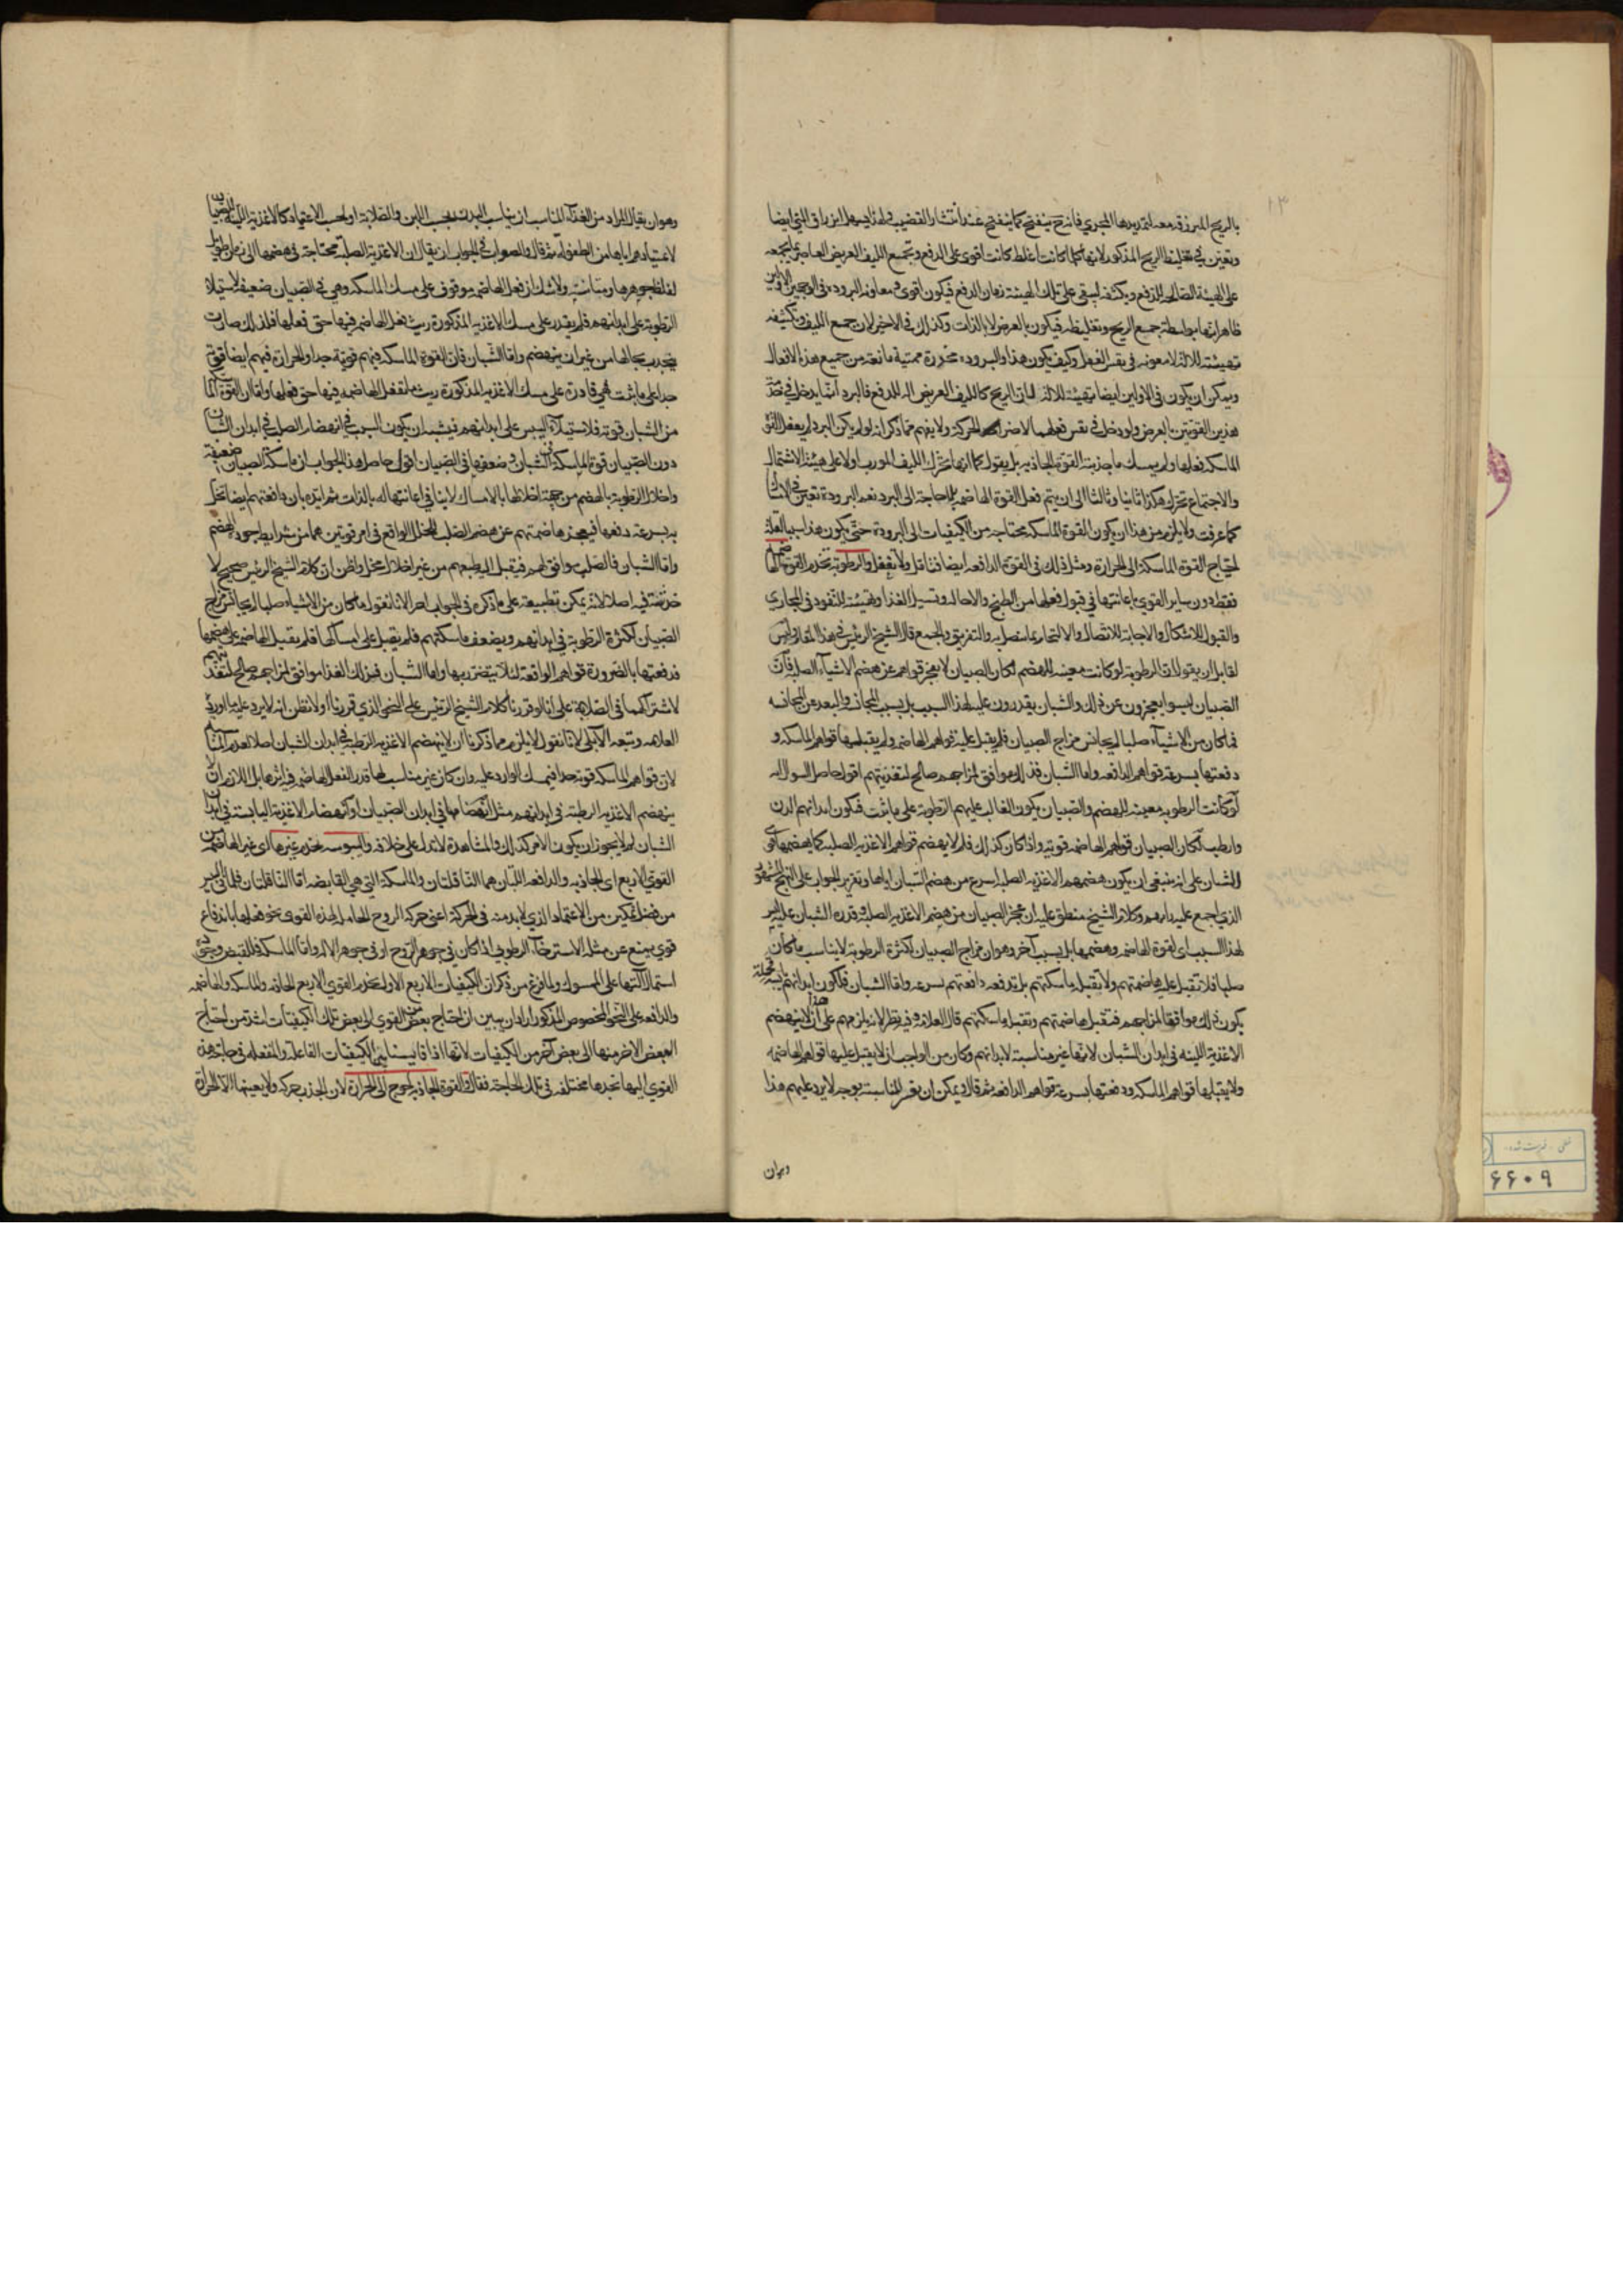 بالريح المبرزقه معه لتمديدها المجرى فانه ح ينفتح كما ينفتح عند انتشار القضيب ولهذا يسهل انزراق المني ايضا
وتعين في تغليظ الريح المذكور لانها كلما كانت اغلظ كانت اقوى على الدفع وتجميع الليف العريض العاصر بما يجمعه
على الهيئة الصالحة للدفع ويكثفه ليبقى على تلك الهيئة زمان الدفع فيكون اقوى ومعاونة البرودة في الوجهين الاولين
ظاهر انها بواسطة جميع الريح وتغليظه فيكون بالعرض لا بالذات وكذلك في الاخير لان جمع الليف وتكثيفه
تهيئته للالة لا معونه في نفس الفعل وكيف يكون هذا والبرودة مخدرة مميتة مانعة من جميع هذه الافعال
ويمكن ان يكون في الاولين ايضا تهيئة للالة لان الريح كالليف العريض اله للدفع فالبرد انما يدخل في خدمة
هذين القوتين بالعرض ولو دخل في نفس فعلهما لاضر الحركة ولا يفهم مما ذكر انه لو لم يكن البرد لم يفعل القوة
الماسكة فعلها ولم يمسك ما جذبته القوة الجاذبه بل يقول كما انها تحرك الليف المورب اولا على هيئة الاشتمال
والاجتماع تحرك هكذا ثانيا وثالثا الى ان يتم فعل القوة الهاضمه بلا حاجة الى البرد نعم البرودة تعين في الامساك
كما عرفت ولا يلزم من هذا ان يكون القوة الماسكة محتاجه من الكيفيات الى البرودة حتى يكون هذا سببا لقلة
احتياج القوة الماسكة الى الحرارة ومثل ذلك في القوة الدافعه ايضا فتامل ولا تغفل والرطوبة تخدم القوة الهاضمة
فقط دون ساير القوى باعانتها في قبول فعلها من الطبخ والاحاله وتسيل الغذا وتهيئته للنفوذ في المجاري
والقبول للاشكال والاجابة للاتصال والالتحام بما تتصل به والتفريق والجمع قال الشيخ الرئيس في هذا المقام وليس
لقايل ان يقول ان الرطوبة لو كانت معينه للهضم لكان الصبيان لا يعجز قواهم عن هضم الاشياء الصلبة فان
الصبيان ليسوا يعجزون عن ذلك والشبان يقدرون عليه لهذا السبب بل بسبب المجانسة والبعد عن المجانسه
فما كان من الاشياء صلبا لم يجانس مزاج الصبيان فلم يقبل عليه قواهم الهاضمه ولم يقبلها قواهم الماسكه و
دفعتها بسرعة قواهم الدافعه واما الشبان فذلك موافق لمزاجهم صالح لتغذيتهم اقول حاصل السوال انه
لو كانت الرطوبه معينه للهضم والصبيان يكون الغالب عليهم الرطوبة على ما ثبت فيكون ابدانهم الدن
وارطب لكان الصبيان قواهم الهاضمه قوية واذا كان كذلك فلم لا يهضم قواهم الاغذيه الصلبه كما يهضمها قوى
الشبان على انه ينبغي ان يكون هضمهم الاغذيه الصلبه اسرع من هضم الشبان اياها وتقرير الجواب على النهج المشهور
الذي اجمع عليه رايهم وكلام الشيخ منطبق عليه ان عجز الصبيان من هضم الاغذيه الصلبه وقدرة الشبان عليه ليس
لهذا السبب اى لقوة الهاضمه وهضمها بل بسبب آخر وهو ان مزاج الصبيان لكثرة الرطوبه لا يناسب ما كان
صلبا فلا تقبل عليه هاضمتهم ولا تقبله ماسكتهم بل تدفعه دافعتهم بسرعه واما الشبان فلكون ابدانهم
يكون ذلك موافقا لمزاجهم فتقبل هاضمتهم وتقبله ماسكتهم قال العلامه وفيه نظر لانه يلزمهم على هذا ان لا ينهضم
الاغذية اللينه في ابدان الشبان لانها غير مناسبة لابدانهم وكان من الواجب ان لا يقبل عليها قواهم الهاضمه
ولا يقبلها قواهم الماسكه ودفعتها بسرعة قواهم الدافعه ثم قال ويمكن ان يفسر المناسبة بوجه لا يرد عليهم هذا
وهو ان
وهو ان يقال المراد من الغذاء المناسب ان يناسب البدن بحسب اللين والصلابة او بحسب الاعتياد كالاغذية اللينة للصبيان
لاعتيادهم اياها من الطفولية ثم قال والصواب في الجواب ان يقال ان الاغذية الصلبة محتاجة في هضمها الى زمان طويل
لغلظ جوهرها ومتانته ولا شك ان فعل الهاضمه موقوف على مسك الماسكه وهي في الصبيان ضعيفة لاستيلاء
الرطوبة على ابدانهم فلم يقدر على مسك الاغذيه المذكورة ريث تفعل الهاضمه فيها حق فعلها فلذلك صارت
ينجذب بحالها من غير ان ينهضم واما الشبان فان القوة الماسكه فيهم قوية جدا والحرارة فيهم ايضا قوية
جدا على ما ثبت فهي قادرة على مسك الاغذيه المذكورة ريث ما تفعل الهاضمه فيها حق فعلها
من الشبان قوية فلاستيلاء اليبس على ابدانهم فيشبه ان يكون السبب في انهضام الصلب في ابدان الشبان
دون الصبيان قوة الماسكة في الشبان وضعفها في الصبيان اقول حاصل هذا الجواب ان ماسكة الصبيان ضعيفة
واخلال الرطوبة بالهضم من جهة اخلالها بالامساك لا ينافي اعانتها له بالذات ثم ايده بان دافعتهم ايضا تخل
به بسرعة دفعها فيعجز هاضمتهم عن هضم الصلب للخلل الواقع في امر قوتين هما من شرايط جودة الهضم
واما الشبان فالصلب موافق لهم فيقبل اليه طبعهم من غير اخلال مخل واظن ان كلام الشيخ الرئيس صحيح لا
خدشة فيه اصلا لانه يمكن تطبيقه على ما ذكره في الجواب اخر الانا نقول ما كان من الاشياء صلبا لم يجانس مزاج
الصبيان لكثرة الرطوبة في ابدانهم ويضعف ماسكتهم فلم يقبل على امساكها فلم يقبل الهاضمه على هضمها
فدفعتها بالضرورة قواهم الدافعة لئلا يتضرر بها واما الشبان فيذلك الغذا موافق لمزاجهم صالح لتغذيتهم
لاشتراكهما في الصلابة على انا لو قررنا كلام الشيخ الرئيس على النحو الذي قررنا اولا نظن انه لا يرد عليه ما اورده
العلامه وتبعه الآملي لانا نقول لا يلزم مما ذكرنا ان لا ينهضم الاغذيه الرطبة في ابدان الشبان اصلا لعدم
لان قواهم الماسكه قوية جدا فيمسك الوارد عليه وان كان غير مناسب لها قدر الفعل الهاضمه فيه اثرها بل اللازم ان لا
ينهضم الاغذيه الرطبة في ابدانهم مثل انهضامها في ابدان الصبيان او انهضام الاغذية اليابسة في ابدان
الشبان لم لا يجوز ان يكون الامر كذلك والمشاهدة لا تدل على خلافه واليبوسه تخدم غيرها اى غير الهاضمة من
القوى الاربع اى الجاذبه والدافعه اللتان هما النقالتان والماسكة التي هي القابضه اما النقالتان فلما في اليبس
من فضل تمكين من الاعتماد الذي لا بد منه في الحركة اعنى حركة الروح الحامل لهذه القوى نحو فعلها باندفاع
قوي يمنع عن مثله الاسترخاء الرطوبي اذا كان في جوهر الروح او في جوهر الالة واما الماسكة فللقبض
اشتمال آلتها على الممسوك ولما فرغ من ذكر ان الكيفيات الاربع الاول تخدم القوى الاربع الجاذبه والماسكه والهاضمه
والدافعه على النحو المخصوص المذكور اراد ان يبين ان احتياج بعض من القوى الى بعض تلك الكيفيات اشد من احتياج
البعض الآخر منها الى بعض آخر من الكيفيات لانها اذا قايسنا بين الكيفيات الفاعلة والمنفعلة في حاجة هذه
القوى اليها تجدها مختلفة في تلك الحاجة فقال ان القوة الجاذبه احوج الى الحرارة لان الجذب حركه ولا يعينها الا الحرارة
۶۶۰۹